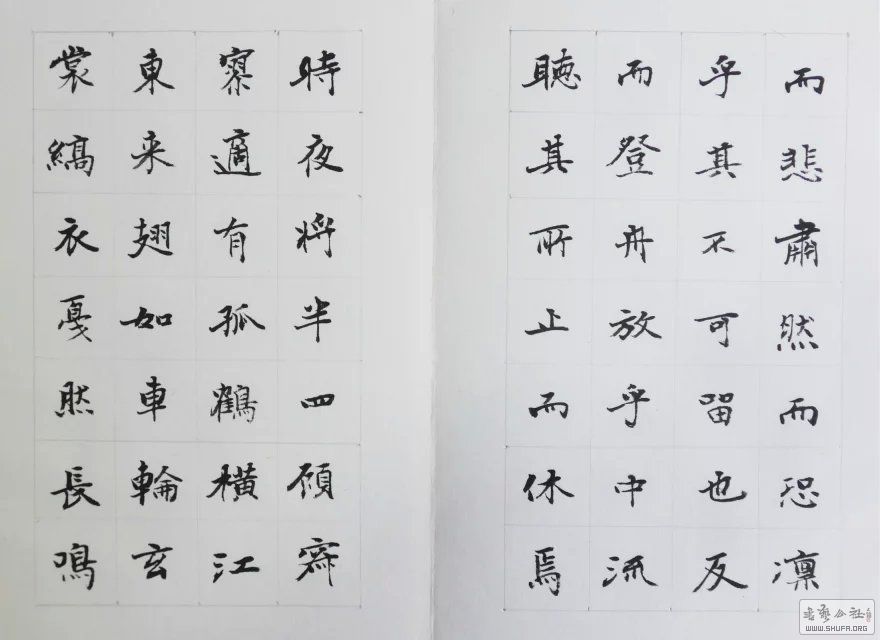 而悲肅然而恐凜
乎其不可留也反
而登舟放乎中流
聽其所止而休焉
時夜將半四顧寂
寥適有孤鶴橫江
東来翅如車輪玄
裳縞衣戛然長鳴
WWW.SHUFA.ORG